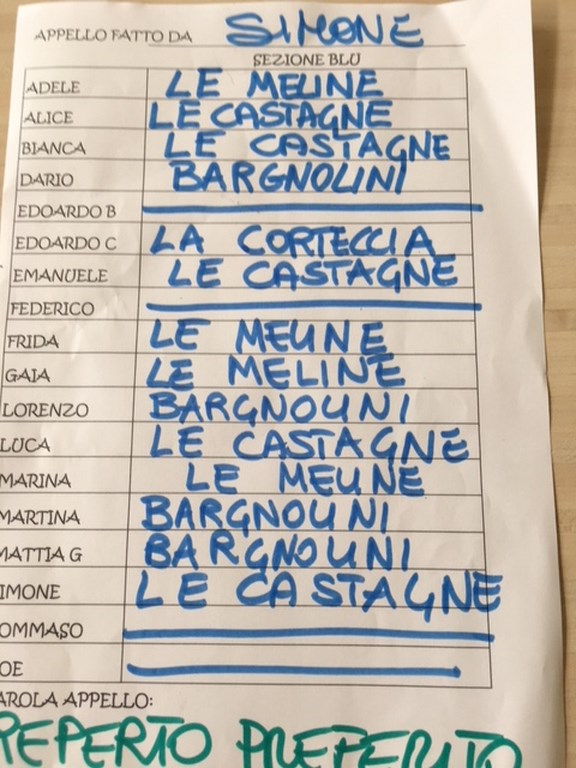 APPELLO FATTO DA SIMONE
SEZIONE BLU
ADELE LE MELINE
ALICE LE CASTAGNE
BIANCA LE CASTAGNE
DARIO BARGNOLINI
EDOARDO B
EDOARDO C LA CORTECCIA
EMANUELE LE CASTAGNE
FEDERICO
FRIDA LE MELINE
GAIA LE MELINE
LORENZO BARGNOLINI
LUCA LE CASTAGNE
MARINA LE MELINE
MARTINA BARGNOLINI
MATTIA G BARGNOLINI
IMONE LE CASTAGNE
OMMASO
OE
AROLA APPELLO:
REPERTO PREFERITO